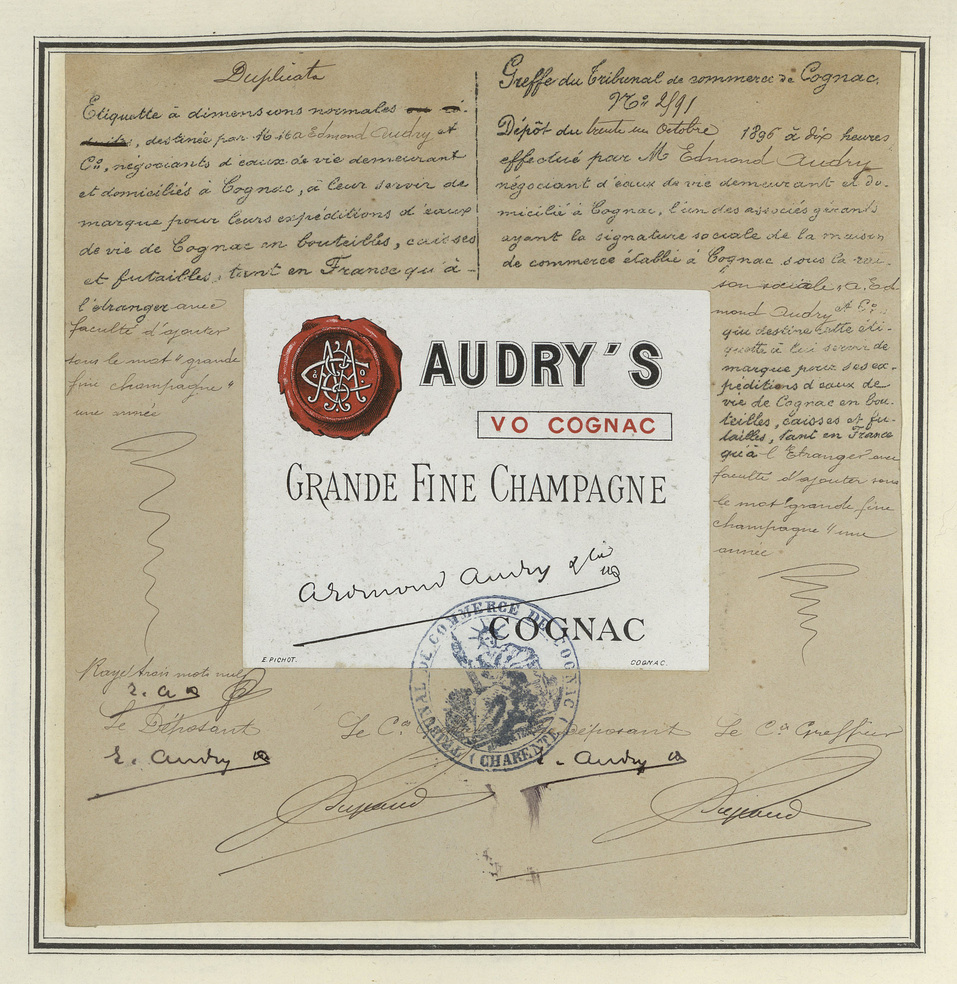 Duplicata
Etiquette à dimensions normales
destinée par M. A. Edmond Audry et
Cie, négociants d'eaux de vie demeurant
et domiciliés à Cognac, à leur servir de
marque pour leurs expéditions d'eaux
de vie de Cognac en bouteilles, caisses
et futailles, tant en France qu'à
l'étranger avec
faculté d'ajouter
sous le mot "grande
fine champagne"
une année
Rayé trois mots nuls
E. A
Le Déposant
E. Audry
Greffe du Tribunal de commerce de Cognac.
No 2/91
Dépôt du trente un Octobre 1896 à dix heures
effectué par M Edmond Audry
négociant d'eaux de vie demeurant et do-
micilié à Cognac, l'un des associés gérants
ayant la signature sociale de la maison
de commerce établie à Cognac sous la rai-
son sociale, A. Ed-
mond Audry et Cie
qui destine cette éti-
quette à lui servir de
marque pour ses ex-
péditions d'eaux de
vie de Cognac en bou-
teilles, caisses et fu-
tailles, tant en France
qu'à l'Etranger avec
faculté d'ajouter sous
le mot "grande fine
champagne" une
année.
AUDRY'S
VO COGNAC
GRANDE FINE CHAMPAGNE
Aedmond Audry & Cie
COGNAC
E. PICHOT.
COGNAC.
TRIBUNAL DE COMMERCE DE COGNAC
(CHARENTE)
Le Cs
Déposant
Le Cs Greffier
E. Audry